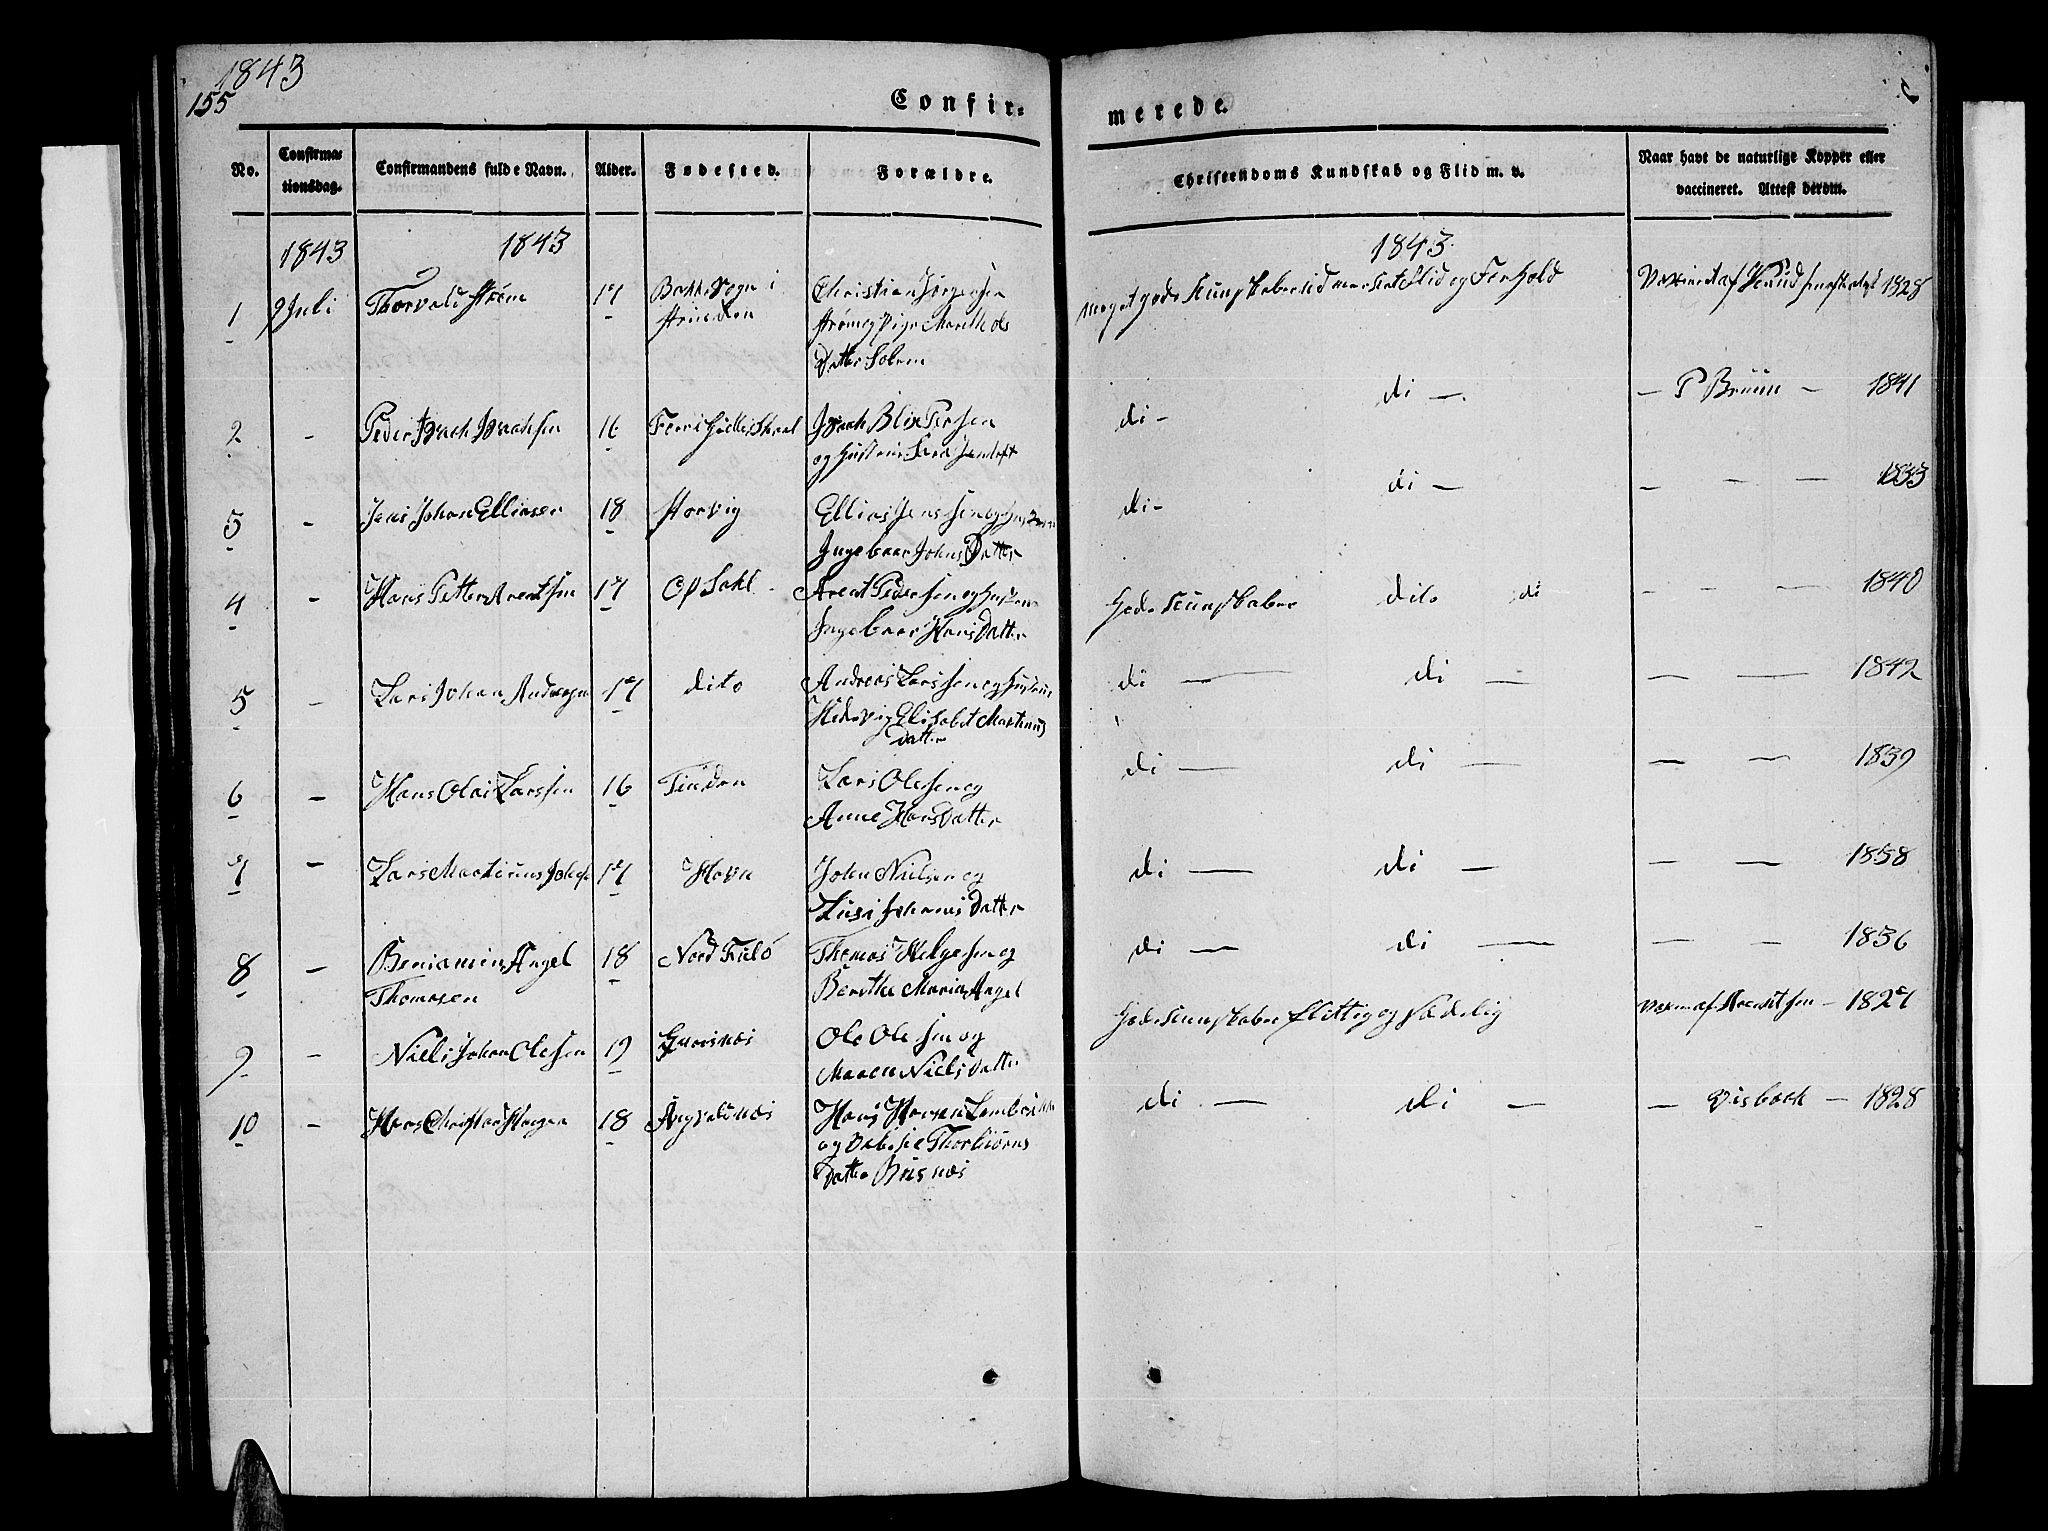 1843
155
Confir=
merede.
No.
Confirma=
tionsdag.
Confirmandens fulde Navn.
Alder.
Fødested.
Forældre.
Christendoms Kundskab og Flid m. v.
Naar havt de naturlige Kopper eller
vaccineret. Attest derom.
1843
1843
1843
1
9 Juli
Thorvald Strøm
17
i
Christian Jørgensen
Strøm og Pige Marith Ols
Datter Solem
meget gode Kunskaber Flid og Forhold
Vaxineret af 1828
2
-
Peder Isach Isachsen
16
Isach Blix Persen
og Hustrue
di - di -
- P Bruun - 1841
3
-
Jens Johan Elliasen
18
Storvig
Ellias Jenssen og Hustrue
Ingebaar Johns Datter
di - di -
- - - 1833
4
-
Hans Petter Arentsen
17
Opsahl
Arent Pedersen og Hustrue
Ingebaar Hans Datter
Gode Kunskaber dito di
- - - 1840
5
-
Lars Johan Andreasen
17
dito
Andreas Larssen og Hustrue
Hedevig Elisabet Martinus
Datter
di - di -
- - 1842
6
-
Hans Olai Larssen
16
Lars Olessen og
Anne Hans Datter
di - di -
- - 1839
7
-
Lars Martinus Johnsen
17
Havn
John Nielsen og
Johannis Datter
di - di -
- - 1838
8
-
Beniamin Angel
Thomasen
18
Nord
Thomas Helgesen og
Berethe Maria Angel
di - di -
- - 1836
9
-
Niels Johan Olessen
19
Ole Olessen og
Maren Niels Datter
Gode Kunskaber flittig og Sædelig
Vaxin af Arentsen - 1827
10
-
Hans Christian Hansen
18
Hans Hansen
og Thorbiørns
Datter
di - di -
- Visback - 1828